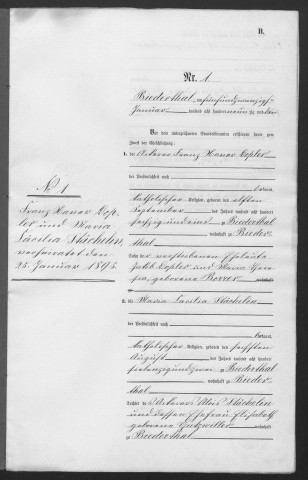 B.
Nr. 1
Biederthal, achtundzwanzigsten
Januar tausend acht hundert neunzig und
Vor dem unterzeichneten Standesbeamten erschienen heute zum
Zweck der Eheschließung:
1. der Ackerer Franz Xaver Dopler
der Persönlichkeit nach
kannt,
katholischer Religion, geboren den elften
September des Jahres tausend acht hundert
sechzig und eins zu Biederthal
wohnhaft zu Bieder-
thal
Sohn der verstorbenen Eheleute
Jakob Dopler und Maria There-
sia, geborene Borrer
2. die Maria Cäcilia Stächelin
der Persönlichkeit nach
kannt,
katholischer Religion, geboren den
August des Jahres tausend acht hundert
siebenzig und zwei zu Biederthal
wohnhaft zu Bieder-
thal
Tochter des Ackerers Alois Stächelin
und dessen Ehefrau Elisabeth
geborene Gutzwiller wohnhaft
zu Biederthal
No 1
Franz Xaver Dop-
ler und Maria
Cäcilia Stächelin,
verheiratet den
28. Januar 1895.